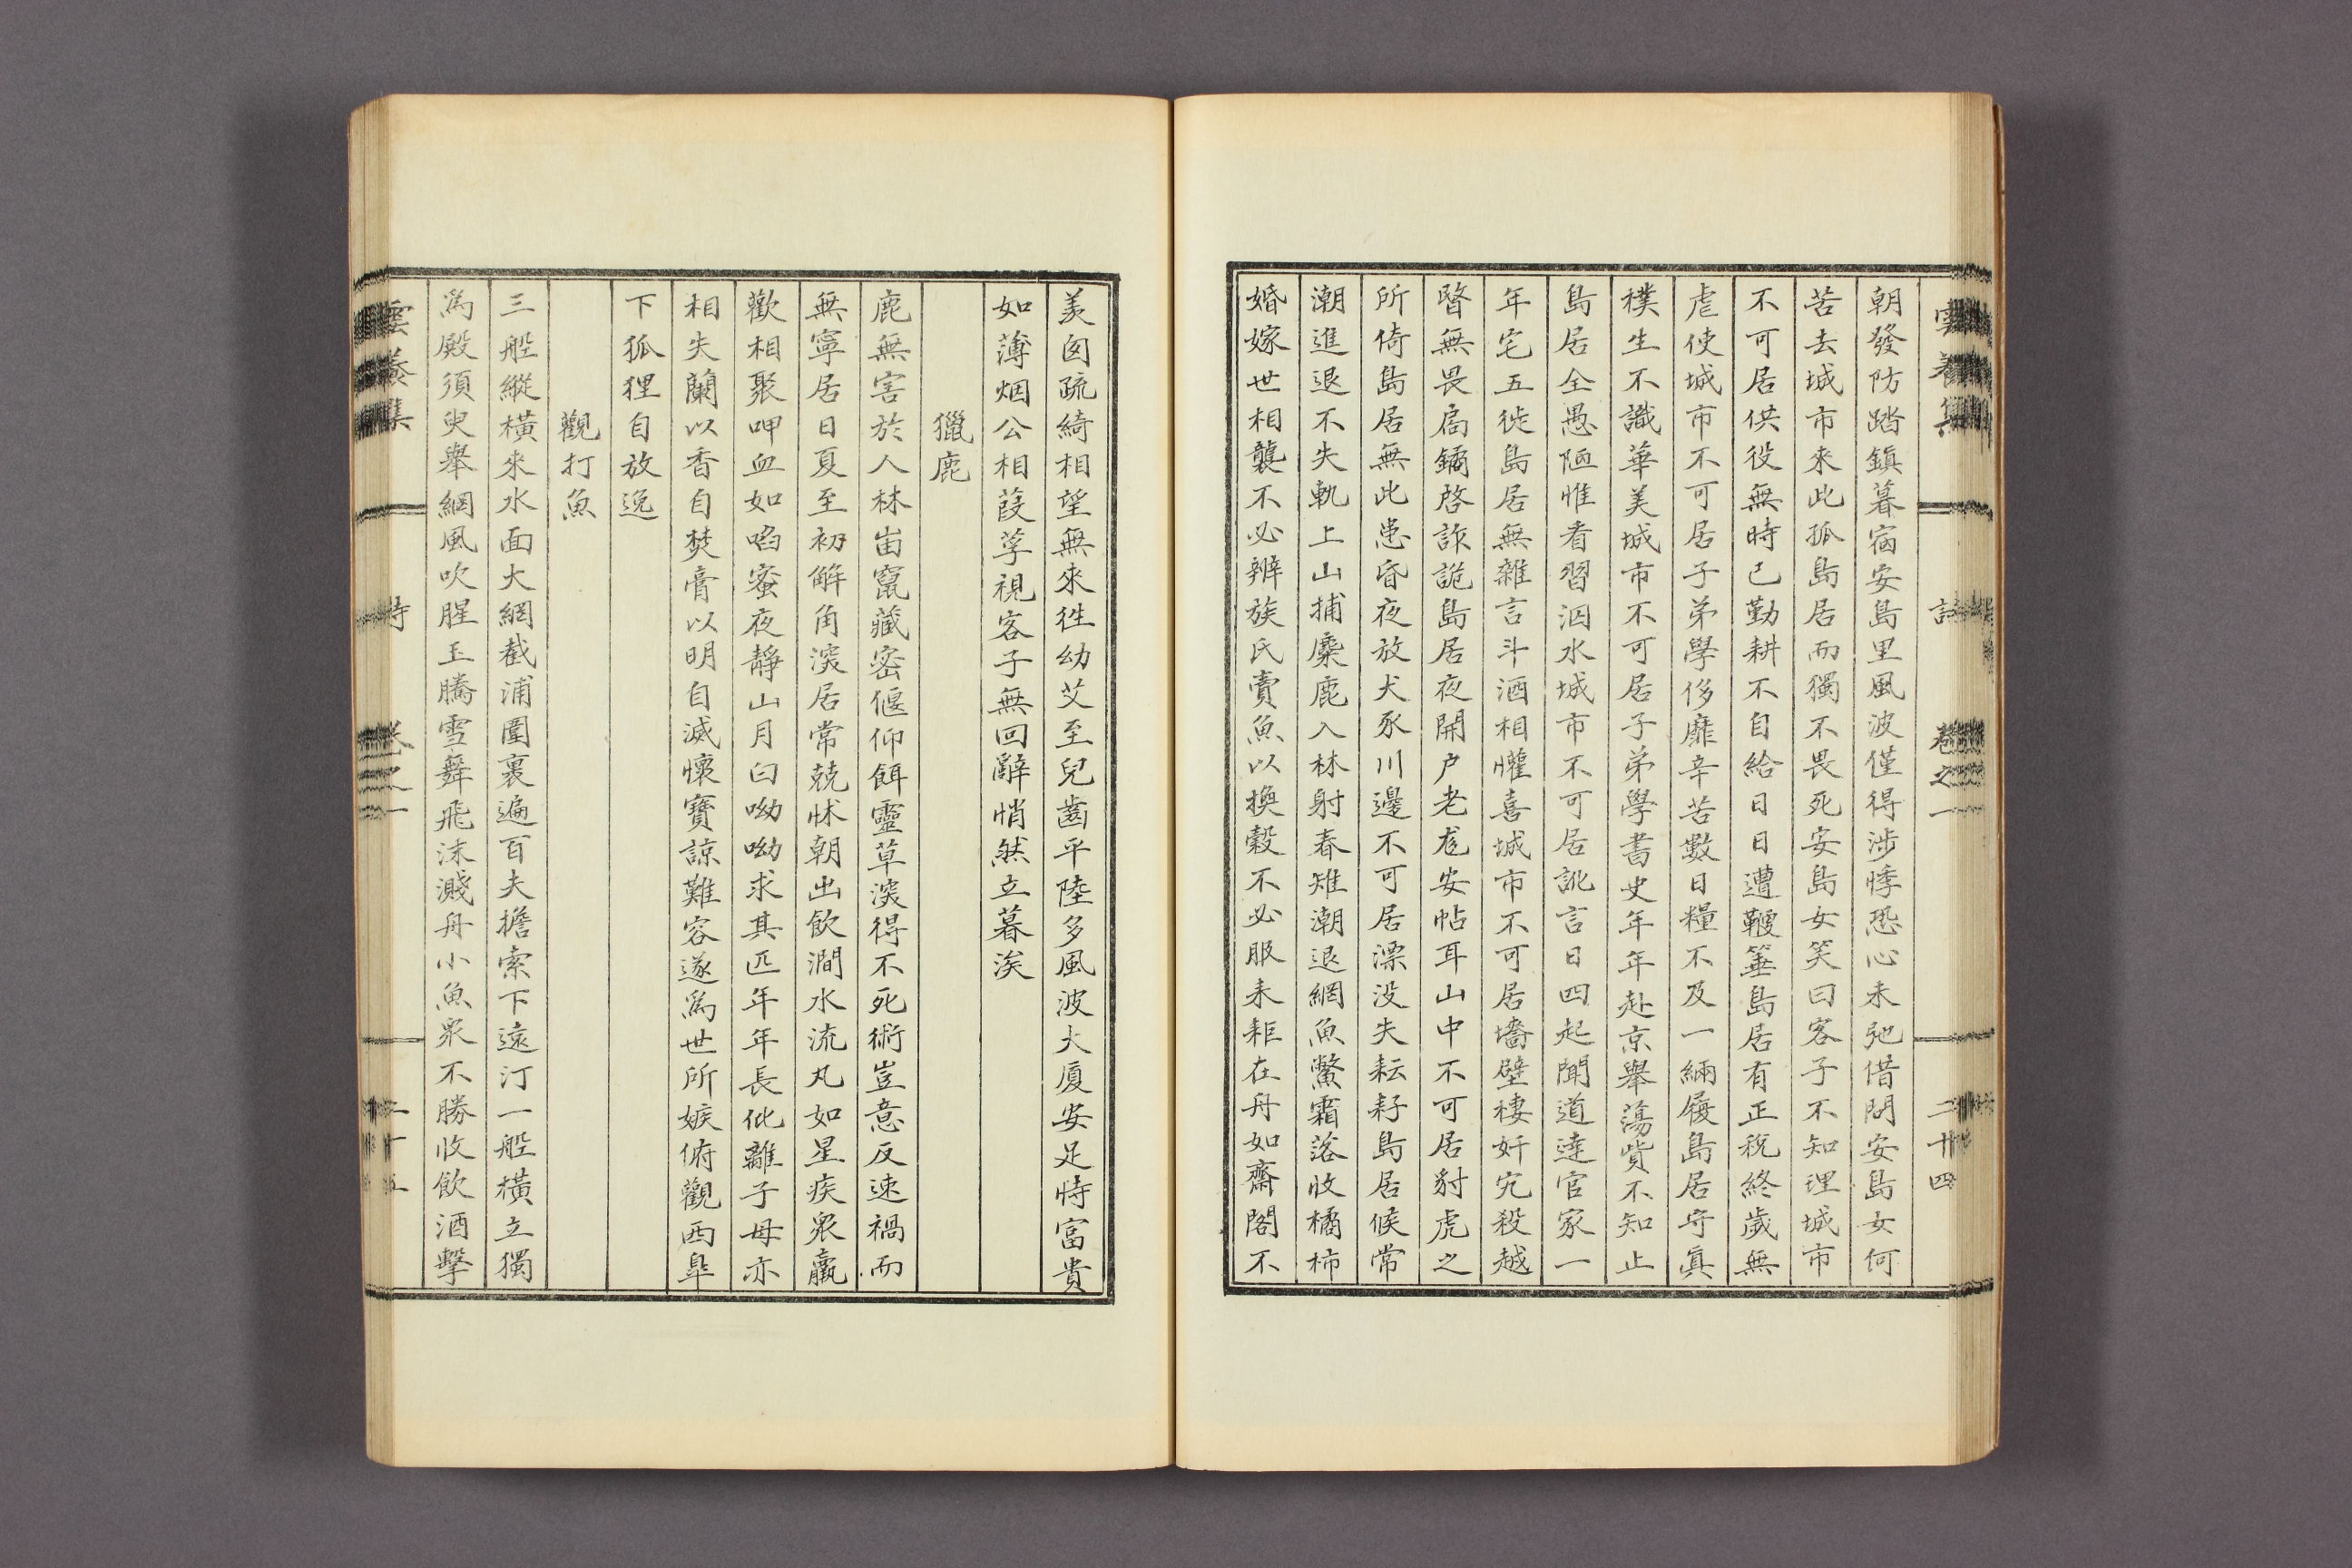 雲養集 詩 卷之一 二十四
朝發防踏鎮暮宿安島里風波僅得涉悸恐心未弛借問安島女何
苦去城市來此孤島居而獨不畏死安島女笑曰客子不知理城市
不可居供役無時已勤耕不自給日日遭鞭箠島居有正稅終歲無
虐使城市不可居子弟學侈靡辛苦數日糧不及一緉履島居守眞
樸生不識華美城市不可居子弟學書史年年赴京擧蕩貲不知止
島居全愚陋惟看習泅水城市不可居訛言日四起聞道達官家一
年宅五徙島居無雜言斗酒相懽喜城市不可居墻壁棲奸宄殺越
暋無畏扃鐍啓詐詭島居夜開户老尨安帖耳山中不可居豺虎之
所倚島居無此患昏夜放犬豕川邊不可居漂没失耘耔島居候常
潮進退不失軌上山捕麋鹿入林射春雉潮退網魚鱉霜落收橘柿
婚嫁世相襲不必辨族氏賣魚以換穀不必服耒耟在舟如齋閣不
羨囱疏綺相望無來徃幼艾至兒齒平陸多風波大廈安足恃富貴
如薄烟公相葭莩視客子無回辭悄然立暮涘
獵鹿
鹿無害於人林峀竄藏密偃仰餌靈草深得不死術豈意反速禍而
無寧居日夏至初解角深居常兢怵朝出飲澗水流丸如星疾衆羸
歡相聚呷血如啗蜜夜靜山月白呦呦求其匹年年長仳離子母亦
相失蘭以香自焚膏以明自滅懷寶諒難容遂爲世所嫉俯觀西皐
下狐狸自放逸
觀打魚
三舡縱橫來水面大網截浦圍裏遍百夫擔索下遠汀一舡橫立獨
爲殿須臾擧網風吹腥玉騰雪舞飛沫濺舟小魚衆不勝收飮酒擊
雲養集 詩 卷之一 二十五